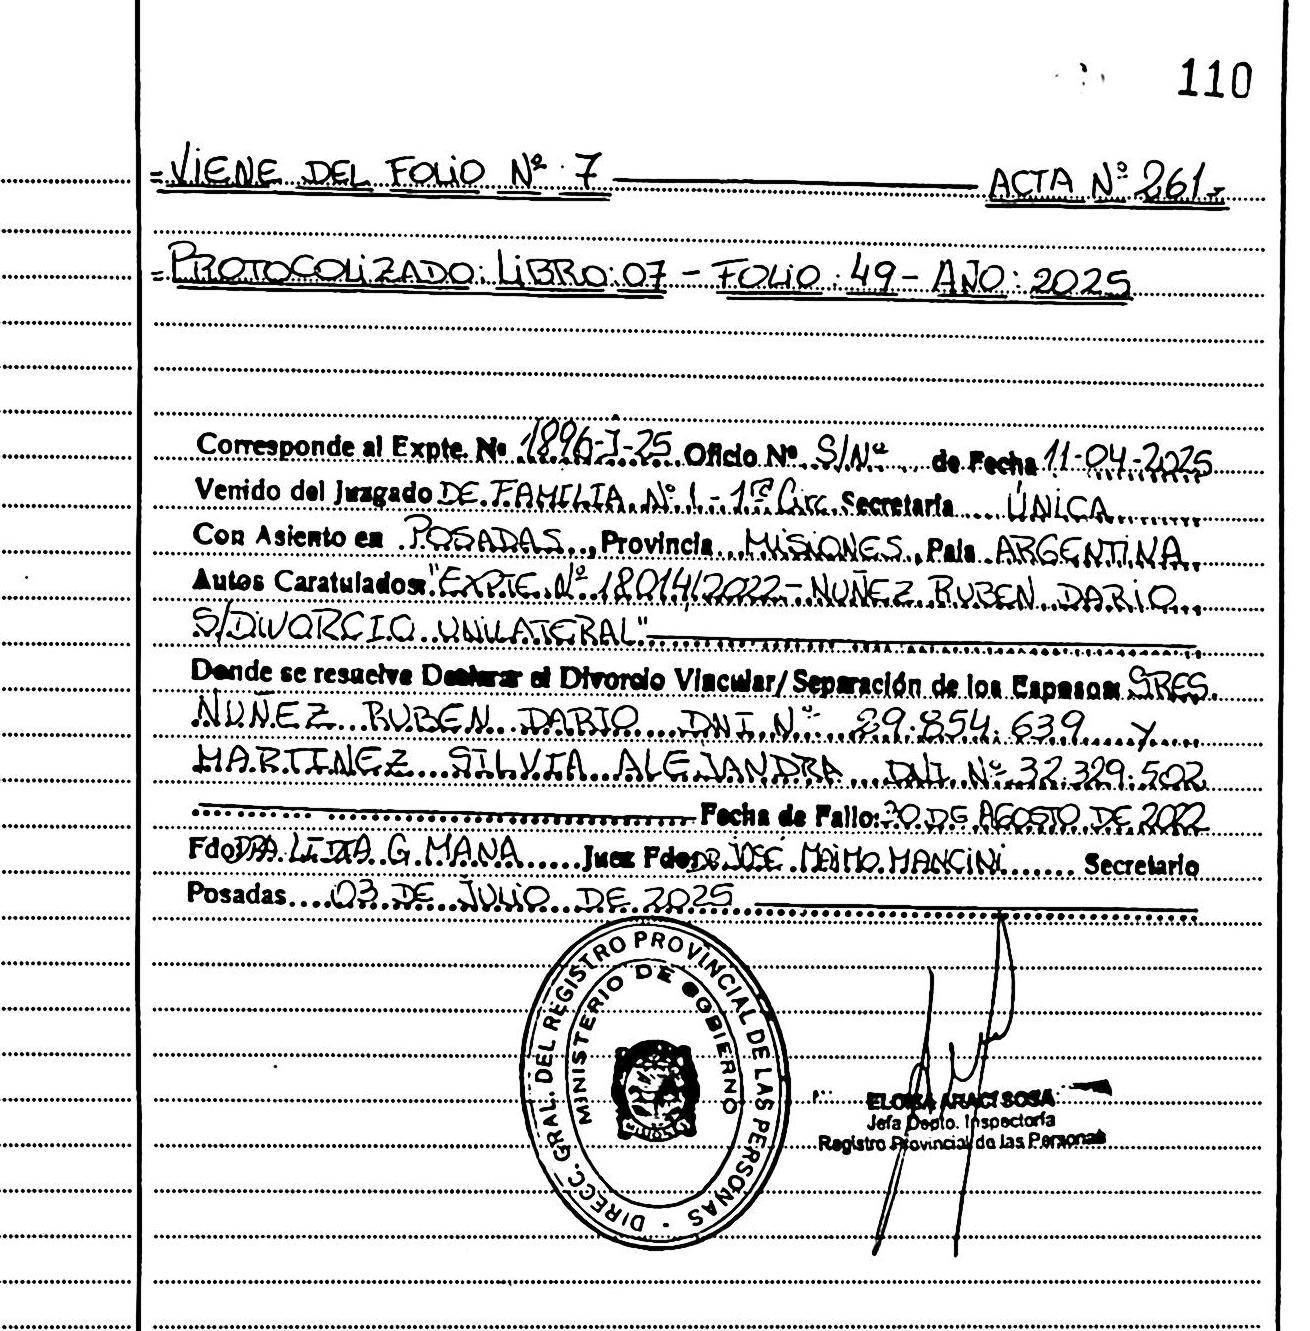 110
=VIENE DEL FOLIO Nº 7 ACTA Nº 261.-
=PROTOCOLIZADO: LIBRO: 07 - FOLIO: 49 - AÑO: 2025
Corresponde al Expte. Nº 1896-J-25 Oficio Nº S/Nº de Fecha 11-04-2025
Venido del Juzgado DE FAMILIA Nº 1 - 1ra Circ. Secretaría ÚNICA
Con Asiento en POSADAS, Provincia MISIONES, País ARGENTINA
Autos Caratulados: "EXPTE. Nº 18014/2022 - NUÑEZ RUBEN DARIO
S/DIVORCIO UNILATERAL"
Donde se resuelve Declarar el Divorcio Vincular/ Separación de los Esposos: SRES.
NUÑEZ RUBEN DARIO DNI Nº 29.854.639 y
MARTINEZ SILVIA ALEJANDRA DNI Nº 32.329.502
Fecha de Fallo: 30 DE AGOSTO DE 2022
Fdo DRA. LIDIA G. MANA Juez Fdo: DR. JOSÉ MAIMO. MANCINI Secretario
Posadas 03 DE JULIO DE 2025
DIRECC. GRAL. DEL REGISTRO PROVINCIAL DE LAS PERSONAS
MINISTERIO DE GOBIERNO
ELOISA ARACI SOSA
Jefa Depto. Inspectoría
Registro Provincial de las Personas